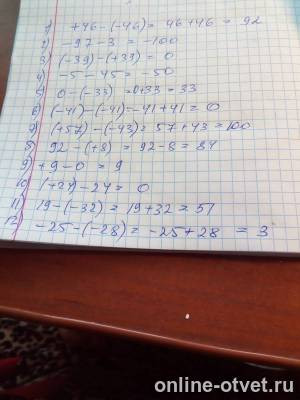 1) +46-(-46)= 46+46 = 92
2) -97-3 = -100
3) (-39)-(+33) = 0
4) -5-45 = -50
5) 0-(-33) =0+33=33
6) (-41)-(-41)=-41+41=0
7) (+57)-(-43)=57+43=100
8) 92-(+8)=92-8=84
9) +9-0=9
10) (+24)-24= 0
11) 19-(-32)=19+32=51
12) -25-(-28)=-25+28 = 3
online-otvet.ru